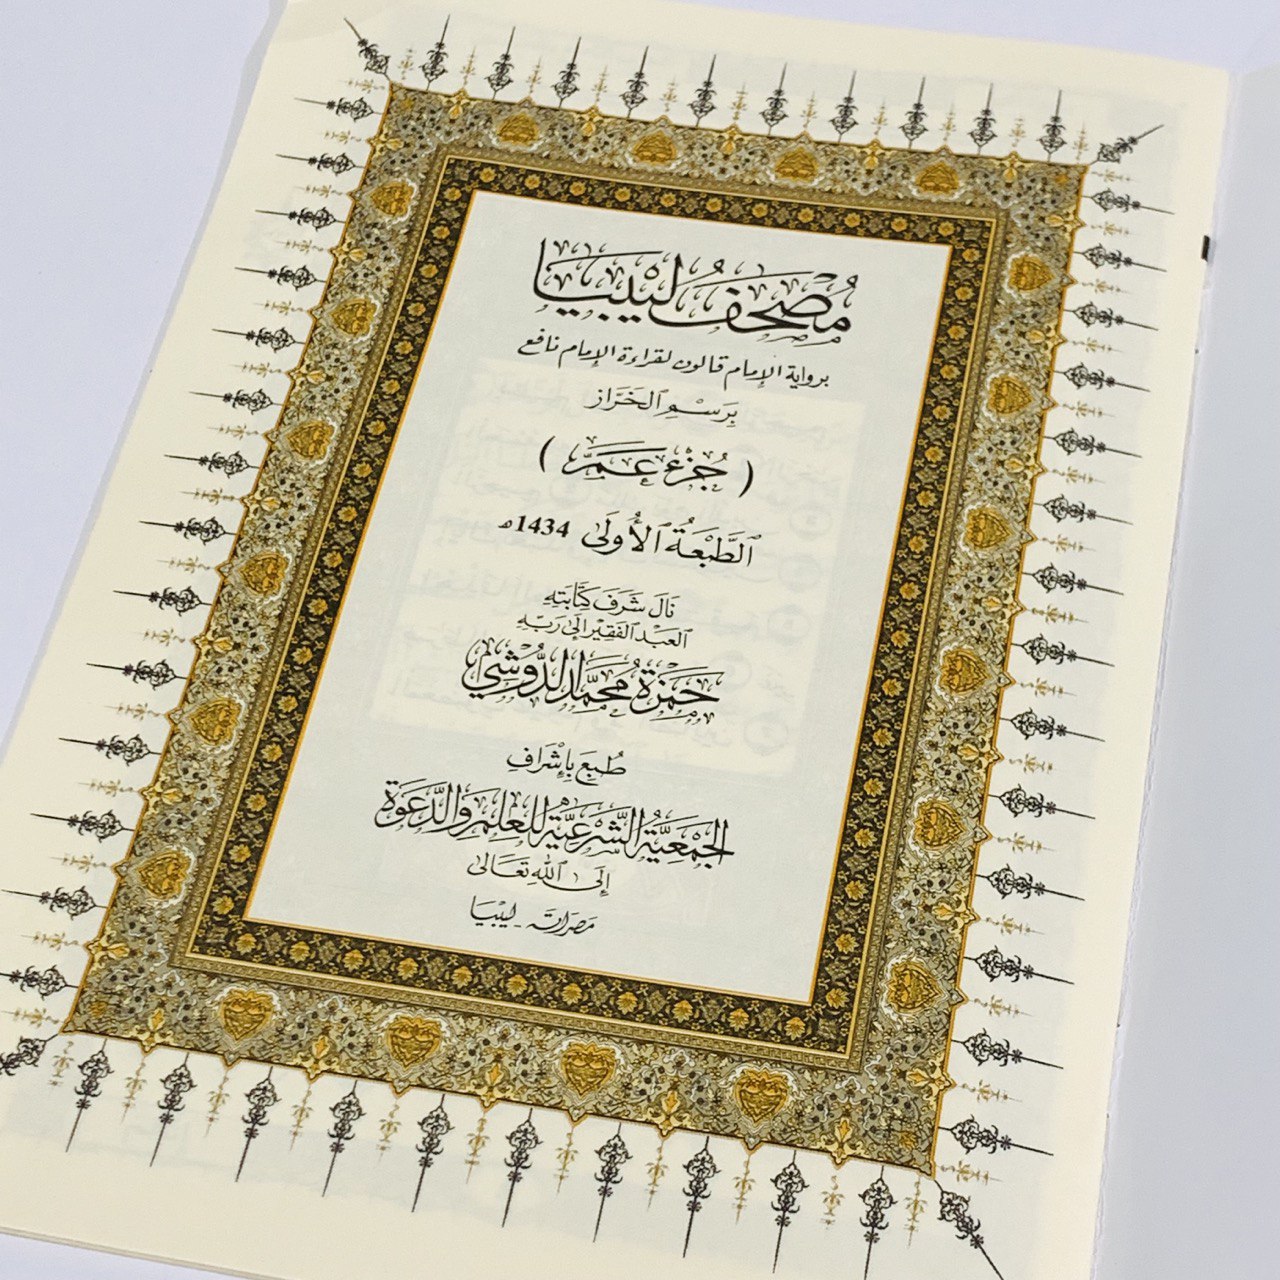 مُصْحَفُ لِيْبِيَا
برواية الإمام قالون لقراءة الإمام نافع
بِرَسْمِ الخَرَّاز
( جُزْءُ عَمَّ )
الطَّبْعَةُ الأُولَى 1434هـ
نَالَ شَرَفَ كِتَابَتِهِ
العَبْدُ الفَقِيْرُ إِلَى رَبِّهِ
حَمْزَةُ مُحَمَّد الدُّوْشِي
طُبِعَ بِإِشْرَافِ
الجَمْعِيَّةُ الشَّرْعِيَّةُ لِلْعِلْمِ وَالدَّعَوَةِ
إِلَى اللهِ تَعَالَى
مصراتة - ليبيا